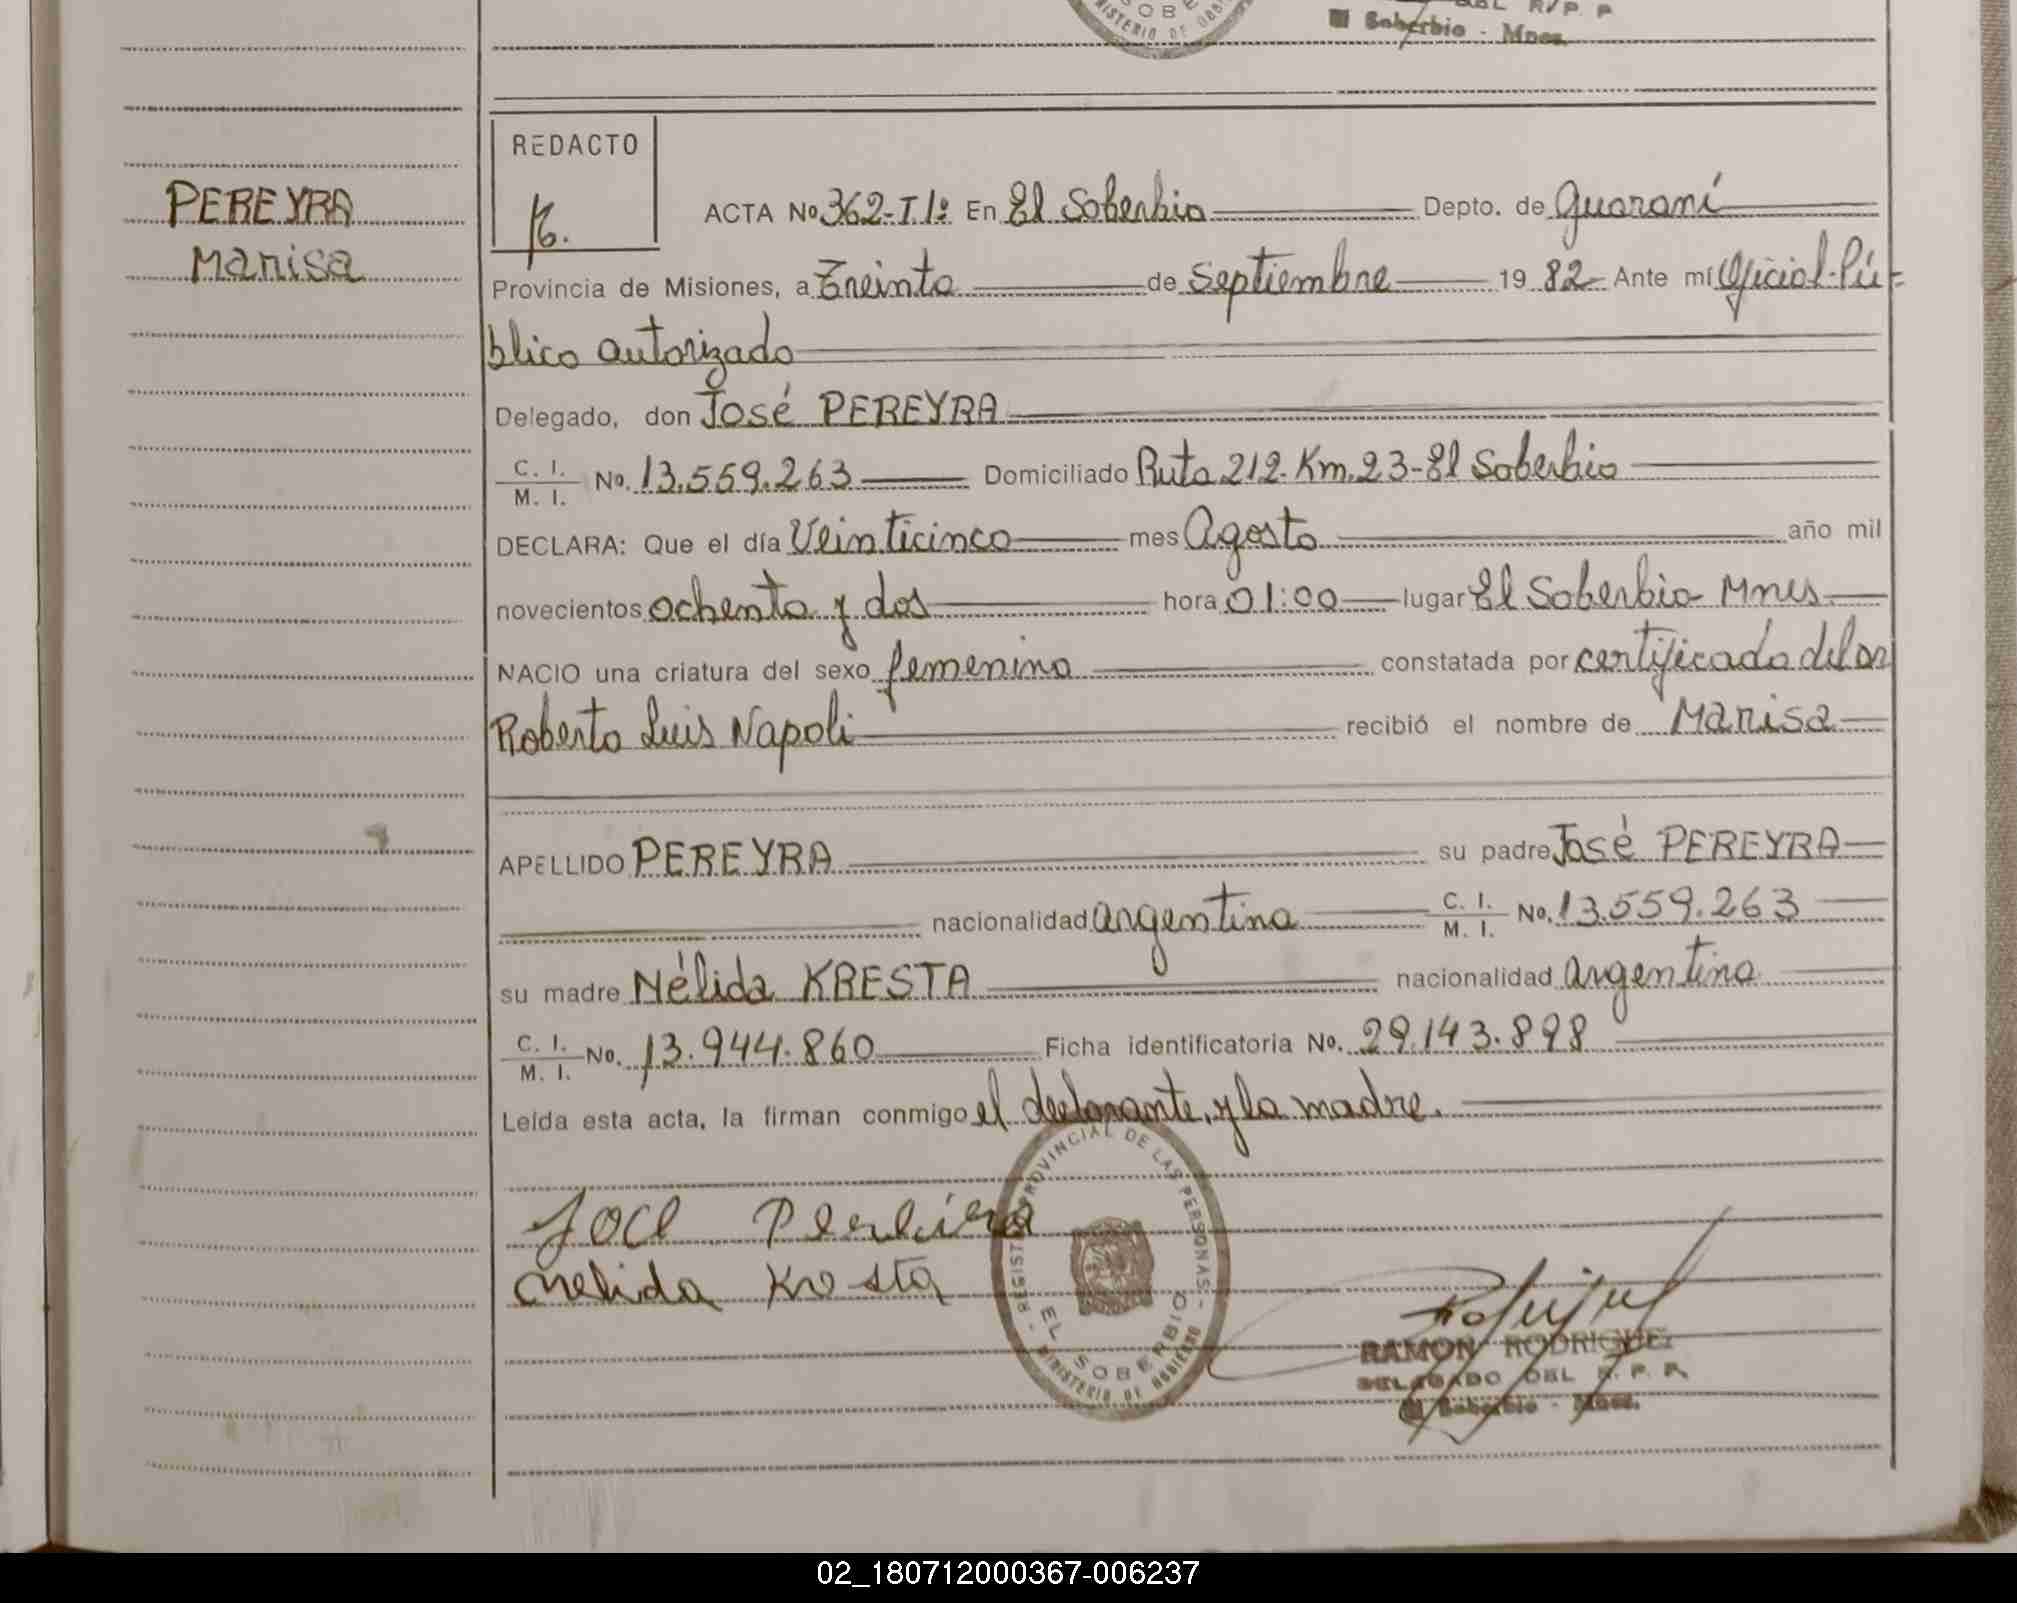 SOBE
MINISTERIO DE GOBI
DEL R.P.P
El Soberbio - Mnes.
PEREYRA
Marisa
REDACTO
ACTA No 362-T1º En El Soberbio Depto. de Guaraní
Provincia de Misiones, a Treinta de Septiembre 19 82- Ante mí Oficial-Pú-
blico autorizado
Delegado, don José PEREYRA
C. I. / M. I. No. 13.559.263 Domiciliado Ruta 212-Km.23-El Soberbio
DECLARA: Que el día Veinticinco mes Agosto año mil
novecientos ochenta y dos hora 01:00 lugar El Soberbio Mnes.
NACIO una criatura del sexo femenino constatada por certificado del Dr
Roberto Luis Napoli recibió el nombre de Marisa
APELLIDO PEREYRA su padre José PEREYRA
nacionalidad argentina C. I. / M. I. No. 13.559.263
su madre Nélida KRESTA nacionalidad argentina
C. I. / M. I. No. 13.944.860 Ficha identificatoria No. 29.143.898
Leída esta acta, la firman conmigo el declarante, y la madre.
REGISTRO PROVINCIAL DE LAS PERSONAS
EL SOBERBIO
MINISTERIO DE GOBIERNO
nelida Kresta
RAMON RODRIGUEZ
DELEGADO DEL R. P. P.
El Soberbio - Mnes.
02_180712000367-006237